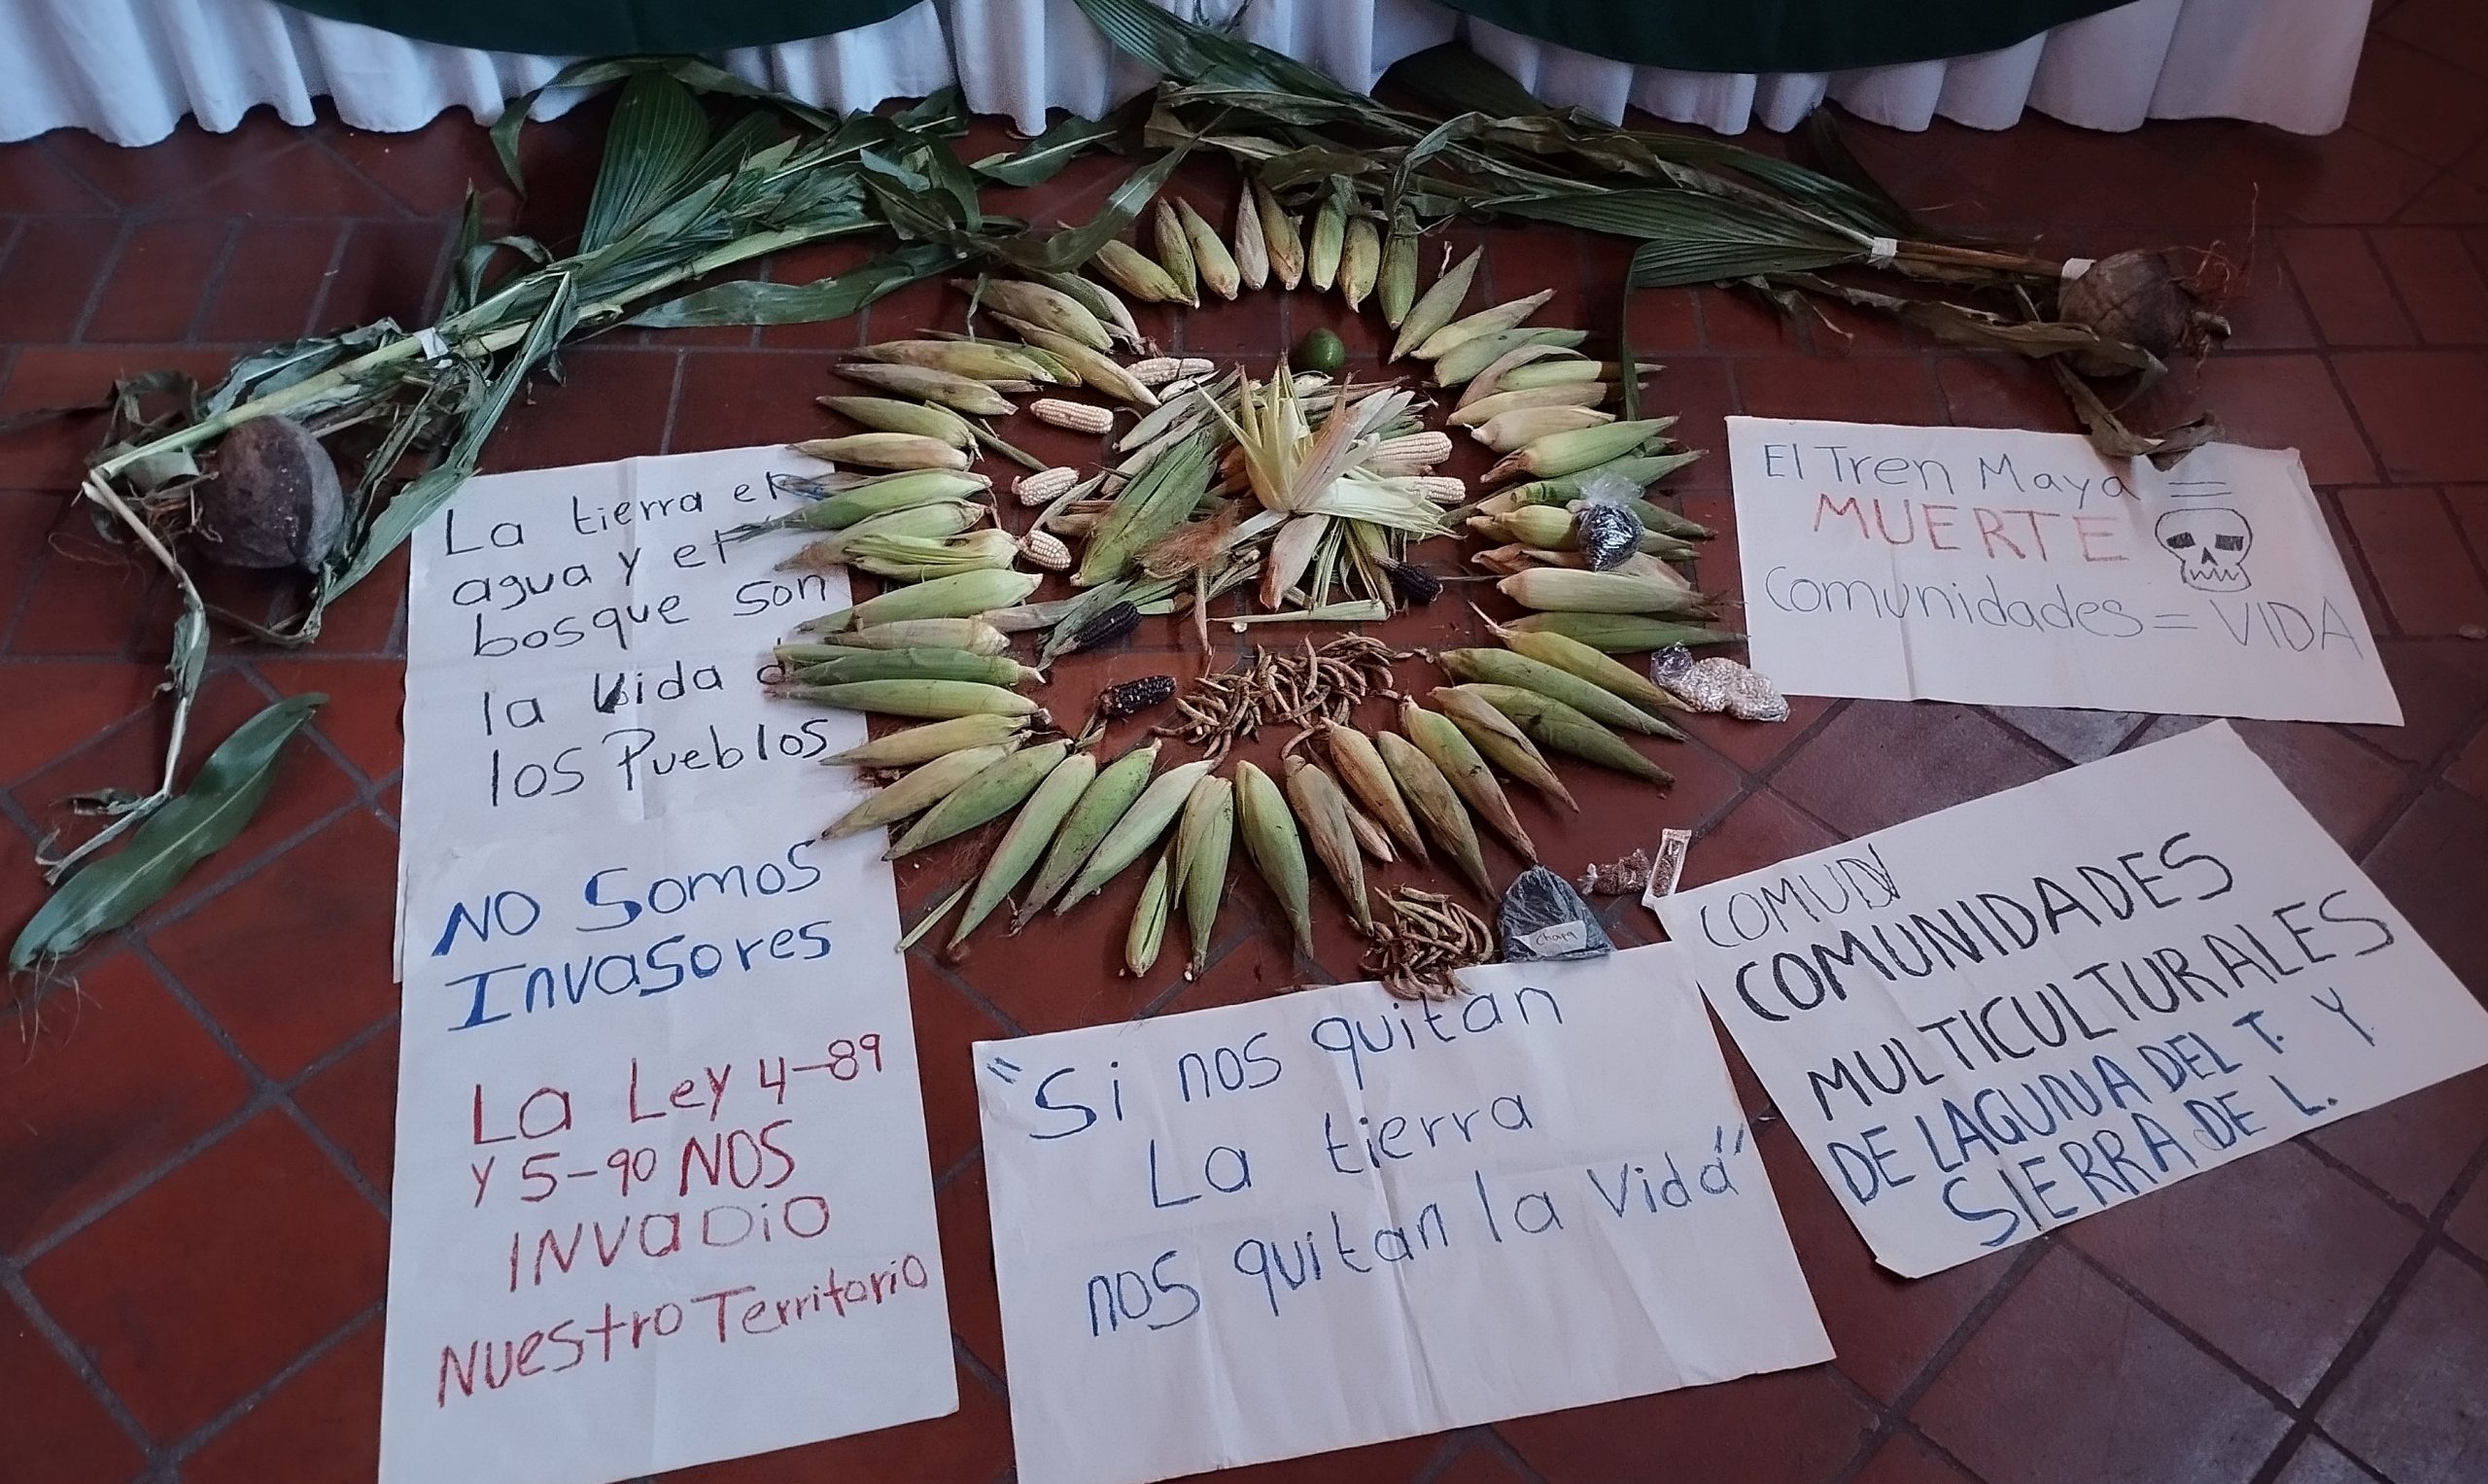 La tierra el
agua y el
bosque son
la Vida d
los Pueblos
NO Somos
Invasores
La Ley 4-89
y 5-90 NOS
INVADiO
Nuestro Territorio
"Si nos quitan
La tierra
nos quitan la Vida"
El Tren Maya =
MUERTE
Comunidades = VIDA
COMUN
COMUNIDADES
MULTICULTURALES
DE LAGUNA DEL T. Y
SIERRA DE L.
Chaya